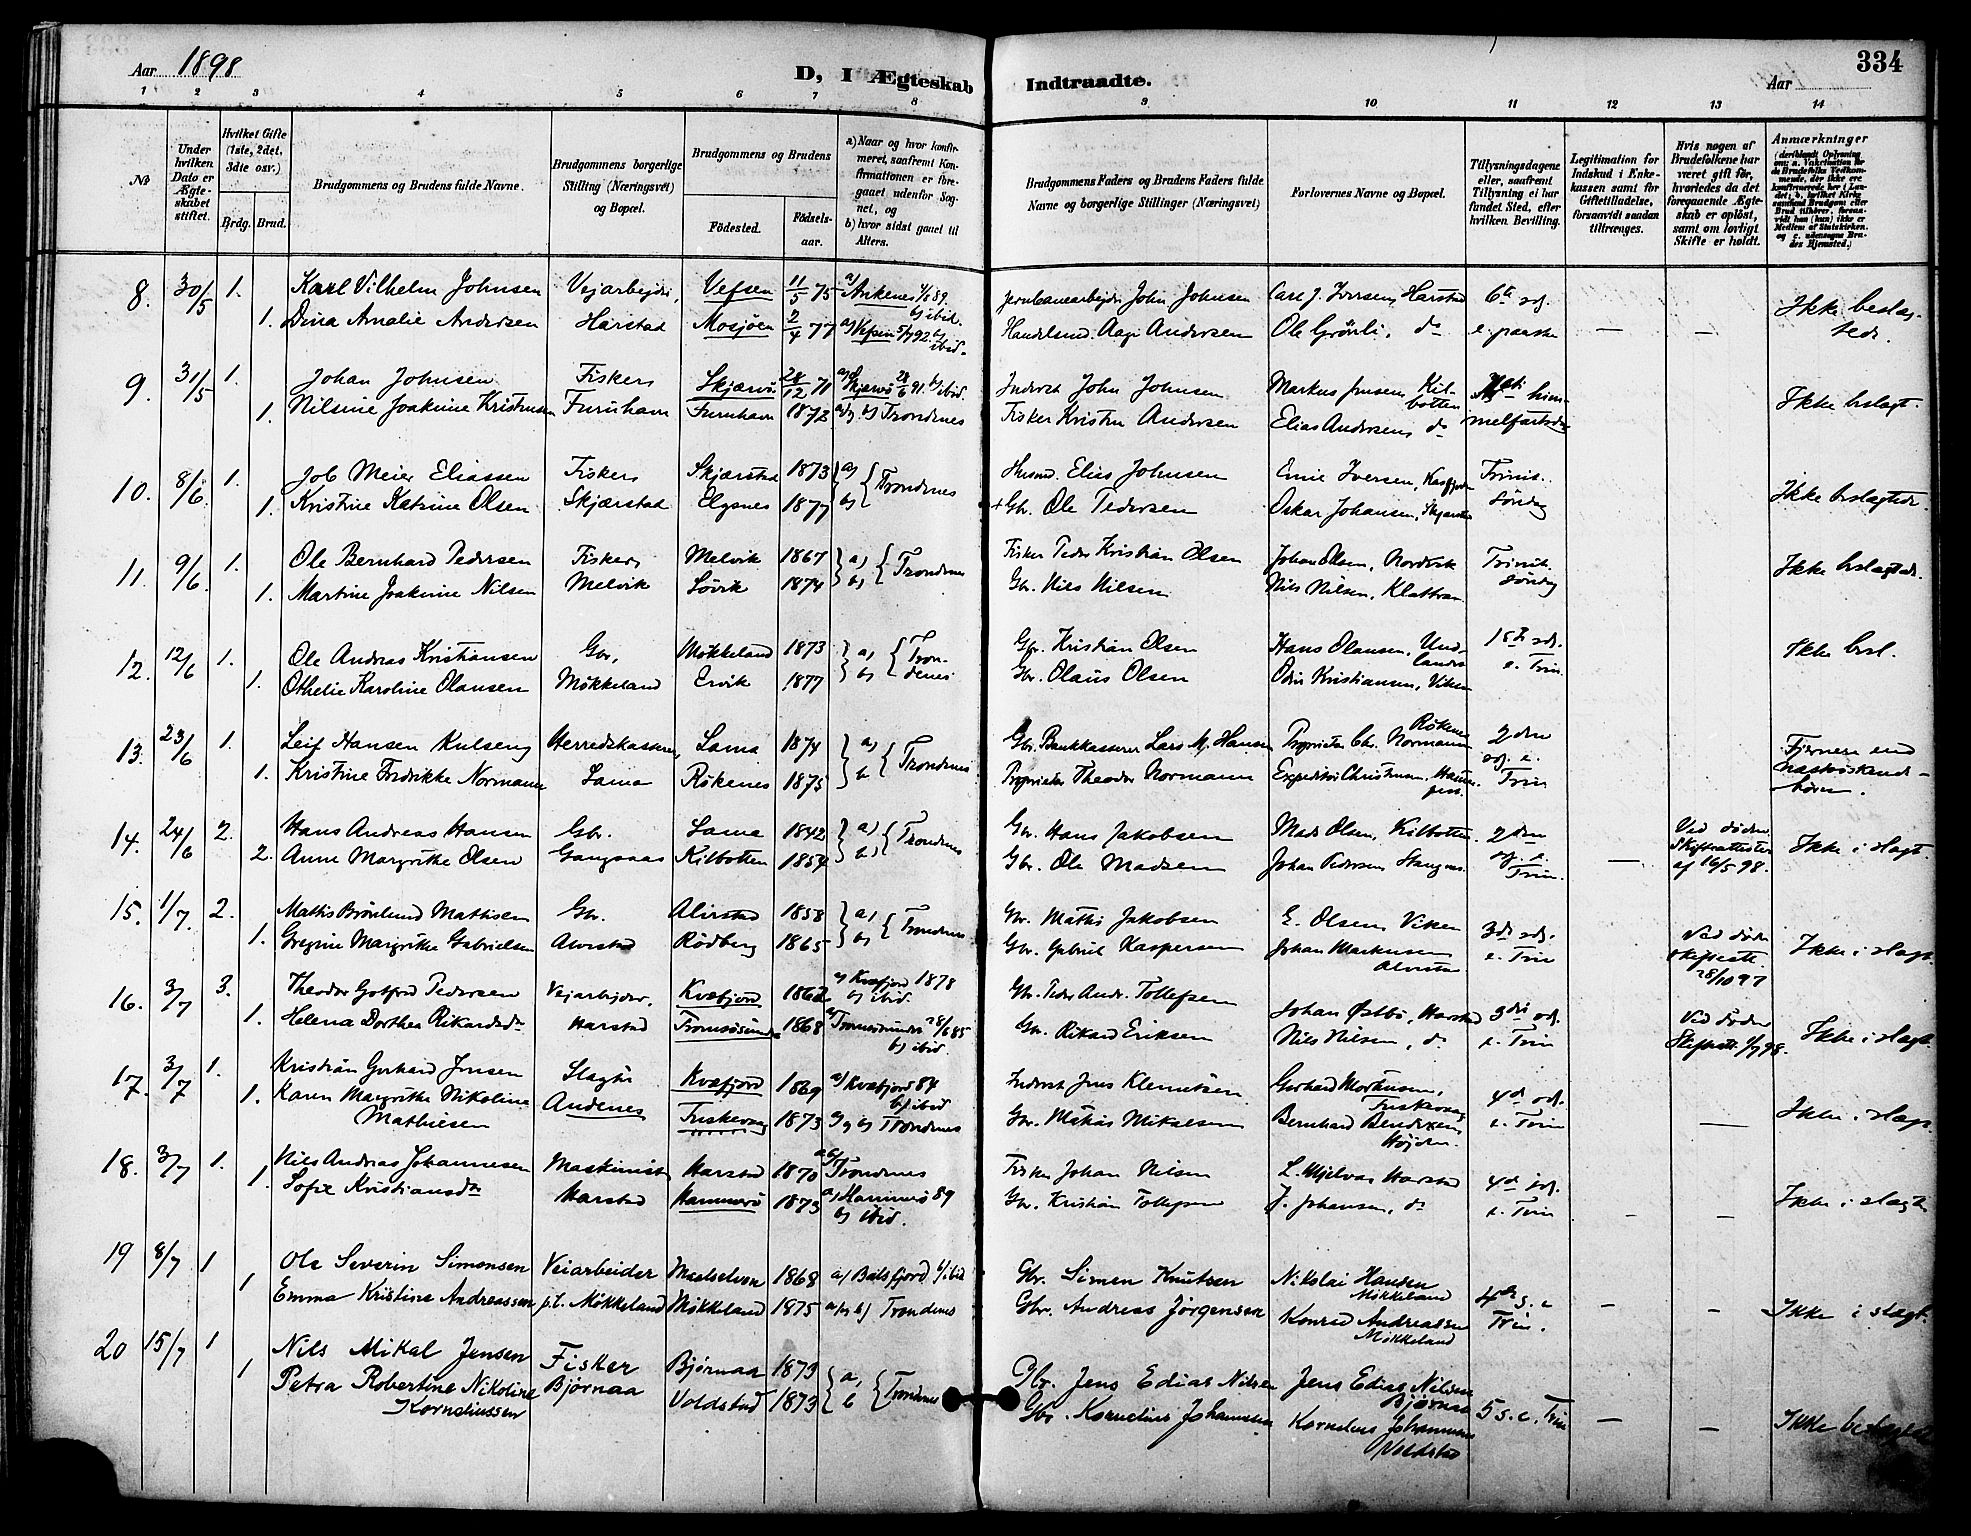 Aar 1898
D, I Ægteskab Indtraadte.
Aar
334
1 2 3 4 5 6 7 8 9 10 11 12 13 14
№
Under hvilken Dato er Ægteskabet stiftet.
Hvilket Gifte (1ste, 2det, 3die osv.)
Brdg. Brud.
Brudgommens og Brudens fulde Navne.
Brudgommens borgerlige Stilling (Næringsvei) og Bopæl.
Brudgommens og Brudens
Födested.
Födselsaar.
a) Naar og hvor konfirmeret, saafremt Konfirmationen er foregaaet udenfor Sognet, og
b) hvor sidst gaaet til Alters.
Brudgommens Faders og Brudens Faders fulde Navne og borgerlige Stillinger (Næringsvei)
Forlovernes Navne og Bopæl.
Tillysningsdagene eller, saafremt Tillysning ei har fundet Sted, efter hvilken Bevilling.
Legitimation for Indskud i Enkekassen samt for Giftetilladelse, forsaavidt saadan tiltrænges.
Hvis nogen af Brudefolkene har været gift för, hvorledes da det foregaaende Ægteskab er oplöst, samt om lovligt Skifte er holdt.
Anmærkninger
8. 30/5 1. Karl Vilhelm Johnsen Vejarbejder, Vefsen 11/5 75 a) Ankenes 89. b) ibid. John Johnsen Carl J. Iversen, Harstad 6te Ikke beslægtede.
1. Dina Amalie Andersen Harstad Mosjøen 2/4 77 a) Vefsen 92. b) ibid. Aage Andersen Ole Grönli, do e. paaske — —
9. 31/5 1. Johan Johnsen Fisker, Skjærvö 28/12 71 a) Skjærvö 28/6 91. b) ibid. Inderst John Johnsen Markus Jensen Kilbotten
1. Nilsine Joakine Kristensen Furuhavn Furuhavn 1872 a) b) Trondenes Fisker Kristen Andersen Elias Andersen, do himmelfartsd. Ikke beslagt.
10. 8/6 1. Job Meier Eliassen Fisker, Skjærstad 1873 a) Trondenes Husmd. Elias Johnsen Emil Iversen, Trinit.
1. Kristine Katrine Olsen Skjærstad Elgsnes 1877 b) + Gbr. Ole Pedersen Oskar Johansen, Skjærstad Söndag Ikke beslægtede.
11. 9/6 1. Ole Bernhard Pedersen Fisker, Melvik 1867 a) Trondenes Fisker Peder Kristian Olsen Johan Olsen, Trinit. Ikke beslægtede.
1. Martine Joakine Nilsen Melvik Lövik 1874 b) Gbr. Nils Nilsen Nils Nilsen, Klattran Söndag
12. 12/6 1. Ole Andreas Kristiansen Gbr, Møkkeland 1873 a) Trondenes Gbr. Kristian Olsen Hans Olausen, Undlandet 1ste sdg. Ikke besl.
1. Othelie Karoline Olausen Møkkeland Ervik 1877 b) Gbr. Olaus Olsen Odin Kristiansen, Viken e. Trin.
13. 23/6 1. Leif Hansen Kulseng Herredskasserer, Sama 1874 a) Trondenes Gbr. Bankkasserer Lars M. Hansen Proprietær Chr. Normann Røkenes 2den Fjernere end næstsöskendebörn.
1. Kristine Fredrikke Normann Sama Røkenes 1875 b Proprietær Theodor Normann Expeditör Christensen, sdg. e. Trin
14. 24/6 2. Hans Andreas Hansen Gbr. Sama 1842 a) Trondenes Gbr. Hans Jakobsen Mads Olsen, Kilbotten 2den Ved døden, Skifteattester af 16/5 98. Ikke i slagt.
2. Anne Margrethe Olsen Gangsaas Kilbotten 1854 b) Gbr. Ole Madsen Johan Pedersen Stangnes sdg. e. Trin. —
15. 1/7. 2. Mathis Brönlund Mathisen Gbr. Alvestad 1858 a) Trondenes Gbr. Mathis Jakobsen E. Olsen Viken 3die sdg. Ved døden skifteatt. 28/10 97 Ikke i slagt.
1. Gregine Margrethe Gabrielsen Alvestad Rødberg 1865 b) Gbr. Gabriel Kaspersen Johan Markussen Alvestad e. Trin
16. 3/7 3. Theodor Gotfred Pedersen Vejarbejder, Kvæfjord 1862 a) Kvæfjord 1878 b) ibid. Gbr. Peder Andr. Tollefsen Johan Østbö, Harstad 3die sdg. Ved døden Skifteatt. 1/7 98. Ikke i slagt.
1. Helena Dorthea Rikardsdr Harstad Tromsösundet 1868 a) Tromsösundet 28/6 85 b) ibid. Gbr. Rikard Eriksen Nils Nilsen, do e. Trin
17. 3/7 1. Kristian Gerhard Jensen Slagter Kvæfjord 1869 a) Kvæfjord 84 b) ibid Inderst Jens Klemetsen Gerhard Martinsen, Fuskevaag 4de sdg. Ikke i slagt
1. Karen Margrethe Nikoline Mathisen Andenes Fuskevaag 1873 a) og b) Trondenes Gbr. Mathias Mikalsen Bernhard Bendixen, Höjden. e. Trin —
18. 3/7 1. Nils Andreas Johannesen Maskinist Harstad 1870 a b) Trondenes Fisker Johan Nilsen L. Mjelva, Harstad 4de sdg.
1. Sofie Kristiansdr Harstad Hammerö 1873 a) Hammerö 89 b) ibid. Gbr. Kristian Tollefsen J. Johansen, do e. Trin — — Ikke i slagt
19 8/7 1 Ole Severin Simonsen Veiarbeider Maalselven 1868 a) Balsfjord b) ibid Gbr. Simon Knutsen Nikolai Hansen Møkkeland 4de s. e. Trin.
1 Emma Kristine Andreassen p.t. Møkkeland Møkkeland 1875 a) og b) Trondenes Gbr. Andreas Jørgensen Konrad Andreassen Møkkeland — — Ikke i slagt.
20 15/7 1 Nils Mikal Jensen Fisker Bjørnaa 1873 a, Trondenes Gbr. Jens Edias Nilsen Jens Edias Nilsen Bjørnaa
1 Petra Robertine Nikoline Korneliussen Bjørnaa Voldstad 1873 b Gbr. Kornelius Johannessen Kornelius Johannessen Voldstad 5 s. e. Trin — — Ikke beslagtet